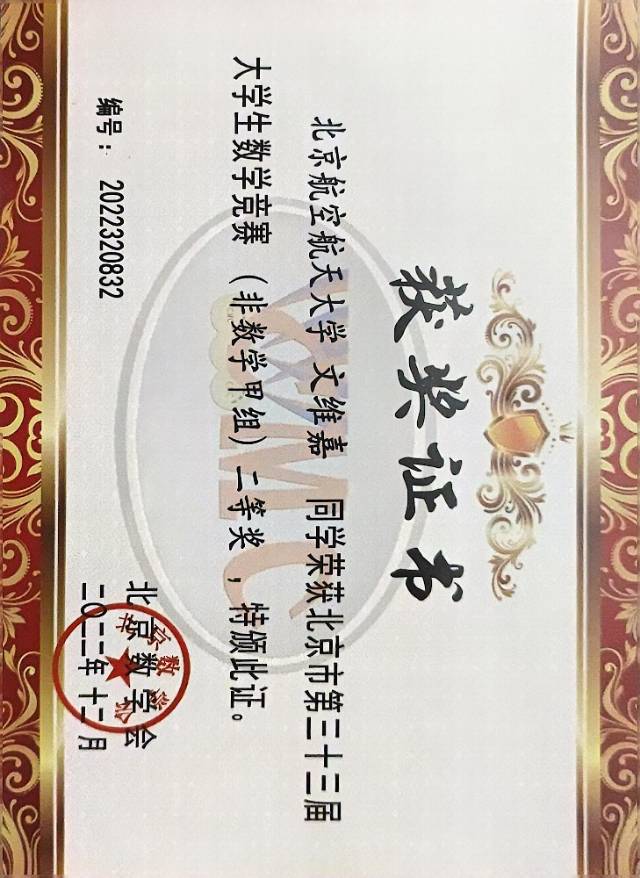 获奖证书
北京航空航天大学 文维嘉 同学荣获北京市第三十三届
大学生数学竞赛(非数学甲组)二等奖,特颁此证。
北京数学会
二〇二二年十二月
编号:2022320832